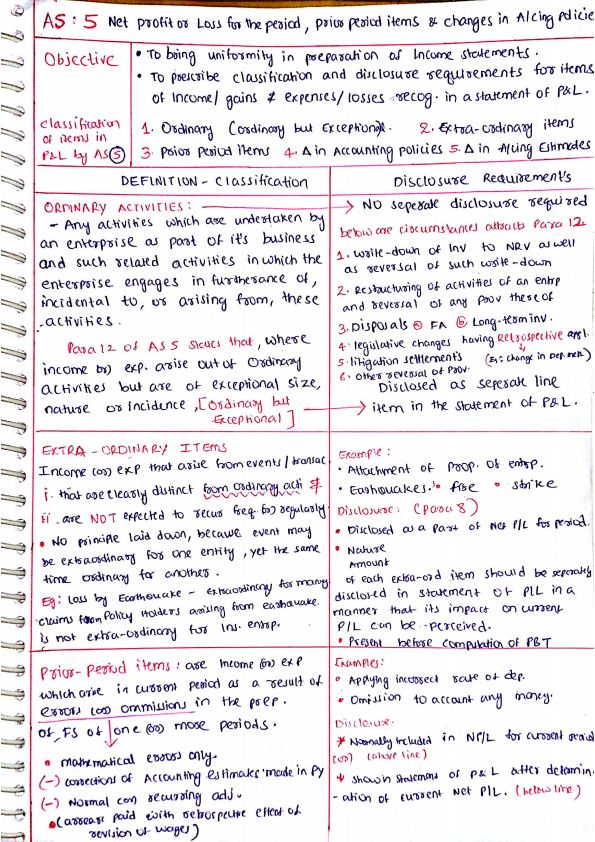 AS : 5 Net profit or Loss for the period, prior period items & changes in A/cing policie
Objective
• To bring uniformity in preparation of Income statements.
• To prescribe classification and disclosure requirements for items
of Income/ gains & expenses/losses recog. in a statement of P&L.
classification
of items in
P&L by AS 5
1. Ordinary (ordinary but Exceptional). 2. Extra-ordinary items
3. Prior Period Items 4. Δ in Accounting policies 5. Δ in A/cing Estimates
DEFINITION - Classification
ORDINARY ACTIVITIES :
- Any activities which are undertaken by
an enterprise as part of it's business
and such related activities in which the
enterprise engages in furtherance of,
incidental to, or arising from, these
activities.
Para 12 of AS 5 states that, where
income (or) exp. arise out of Ordinary
activities but are of exceptional size,
nature or incidence, [Ordinary but
Exceptional]
Disclosure Requirements
→ NO seperate disclosure required
below are circumstances attracts Para 12
1. Write-down of Inv to NRV as well
as reversal of such write-down
2. Restructuring of activities of an entrp
and reversal of any Prov there of
3. Disposals @ FA (b) Long-term inv.
4. legislative changes having Retrospective appl.
5. litigation settlements (Eg: change in Dep. meth.)
6. other reversal of Prov.
Disclosed as seperate line
→ item in the statement of P&L.
EXTRA - ORDINARY ITEMS
Income (or) exp that arise from events/transac
i. that are clearly distinct from ordinary acti &
ii. are NOT expected to recur freq. (or) regularly
• No principle laid down, because event may
be extraordinary for one entity, yet the same
time ordinary for another.
Eg: loss by Earthquake - extraordinary for many
claims from Policy Holders arising from earthquake.
is not extra-ordinary for Ins. entrp.
Example :
• Attachment of prop. of entrp.
• Earthquakes. • fire • strike
Disclosure : (para 8)
• Disclosed as a part of Net P/L for period.
• Nature
Amount
of each extra-ord item should be seperately
disclosed in statement of P/L in a
manner that its impact on current
P/L can be perceived.
• Present before computation of PBT
Prior-Period items : are Income (or) exp
which arise in current period as a result of
errors (or) ommissions in the prep.
of FS of one (or) more periods.
• mathematical errors only.
(-) corrections of Accounting estimates made in PY
(-) Normal (or) recurring adj.
• (arrears paid with retrospective effect of
revision of wages)
Examples:
• Applying incorrect rate of dep.
• Omission to account any money.
Disclosure.
* Normally included in NP/L for current period
(or) (above line)
* shown statement of P&L after determin
- ation of current Net P/L. (below line)